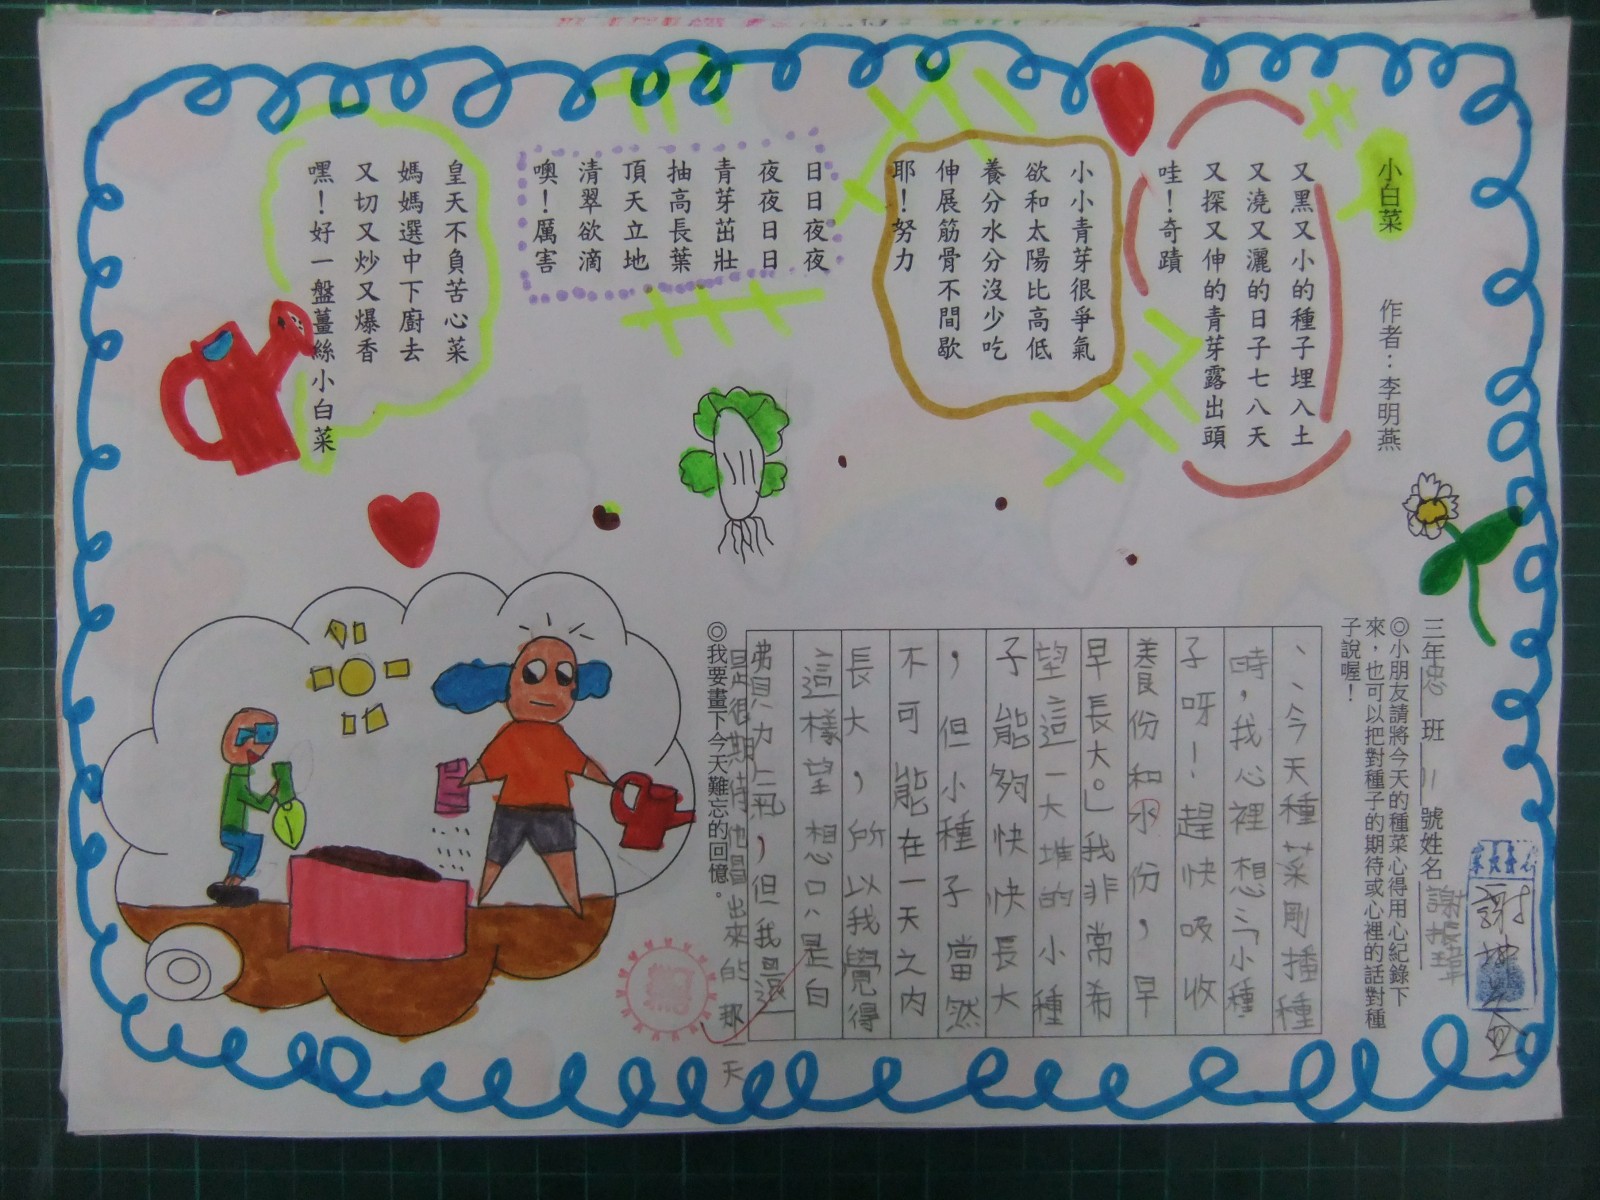 小白菜　作者：李明燕
又黑又小的種子埋入土
又澆又灑的日子七八天
又探又伸的青芽露出頭
哇！奇蹟
小小青芽很爭氣
欲和太陽比高低
養分水分沒少吃
伸展筋骨不間歇
耶！努力
日日夜夜
夜夜日日
青芽茁壯
抽高長葉
頂天立地
清翠欲滴
噢！厲害
皇天不負苦心菜
媽媽選中下廚去
又切又炒又爆香
嘿！好一盤薑絲小白菜
三年忠班11號姓名謝振瑋
◎小朋友請將今天的種菜心得用心紀錄下
來，也可以把對種子的期待或心裡的話對種
子說喔！
今天種菜剛播種
時，我心裡想：「小種
子呀！趕快吸收
養份和水份，早
早長大。」我非常希
望這一大堆的小種
子能夠快快長大
，但小種子當然
不可能在一天之內
長大，所以我覺得
這樣妄想只是白
費力氣，但我還
是很期待他冒出來的那一天
◎我要畫下今天難忘的回憶。